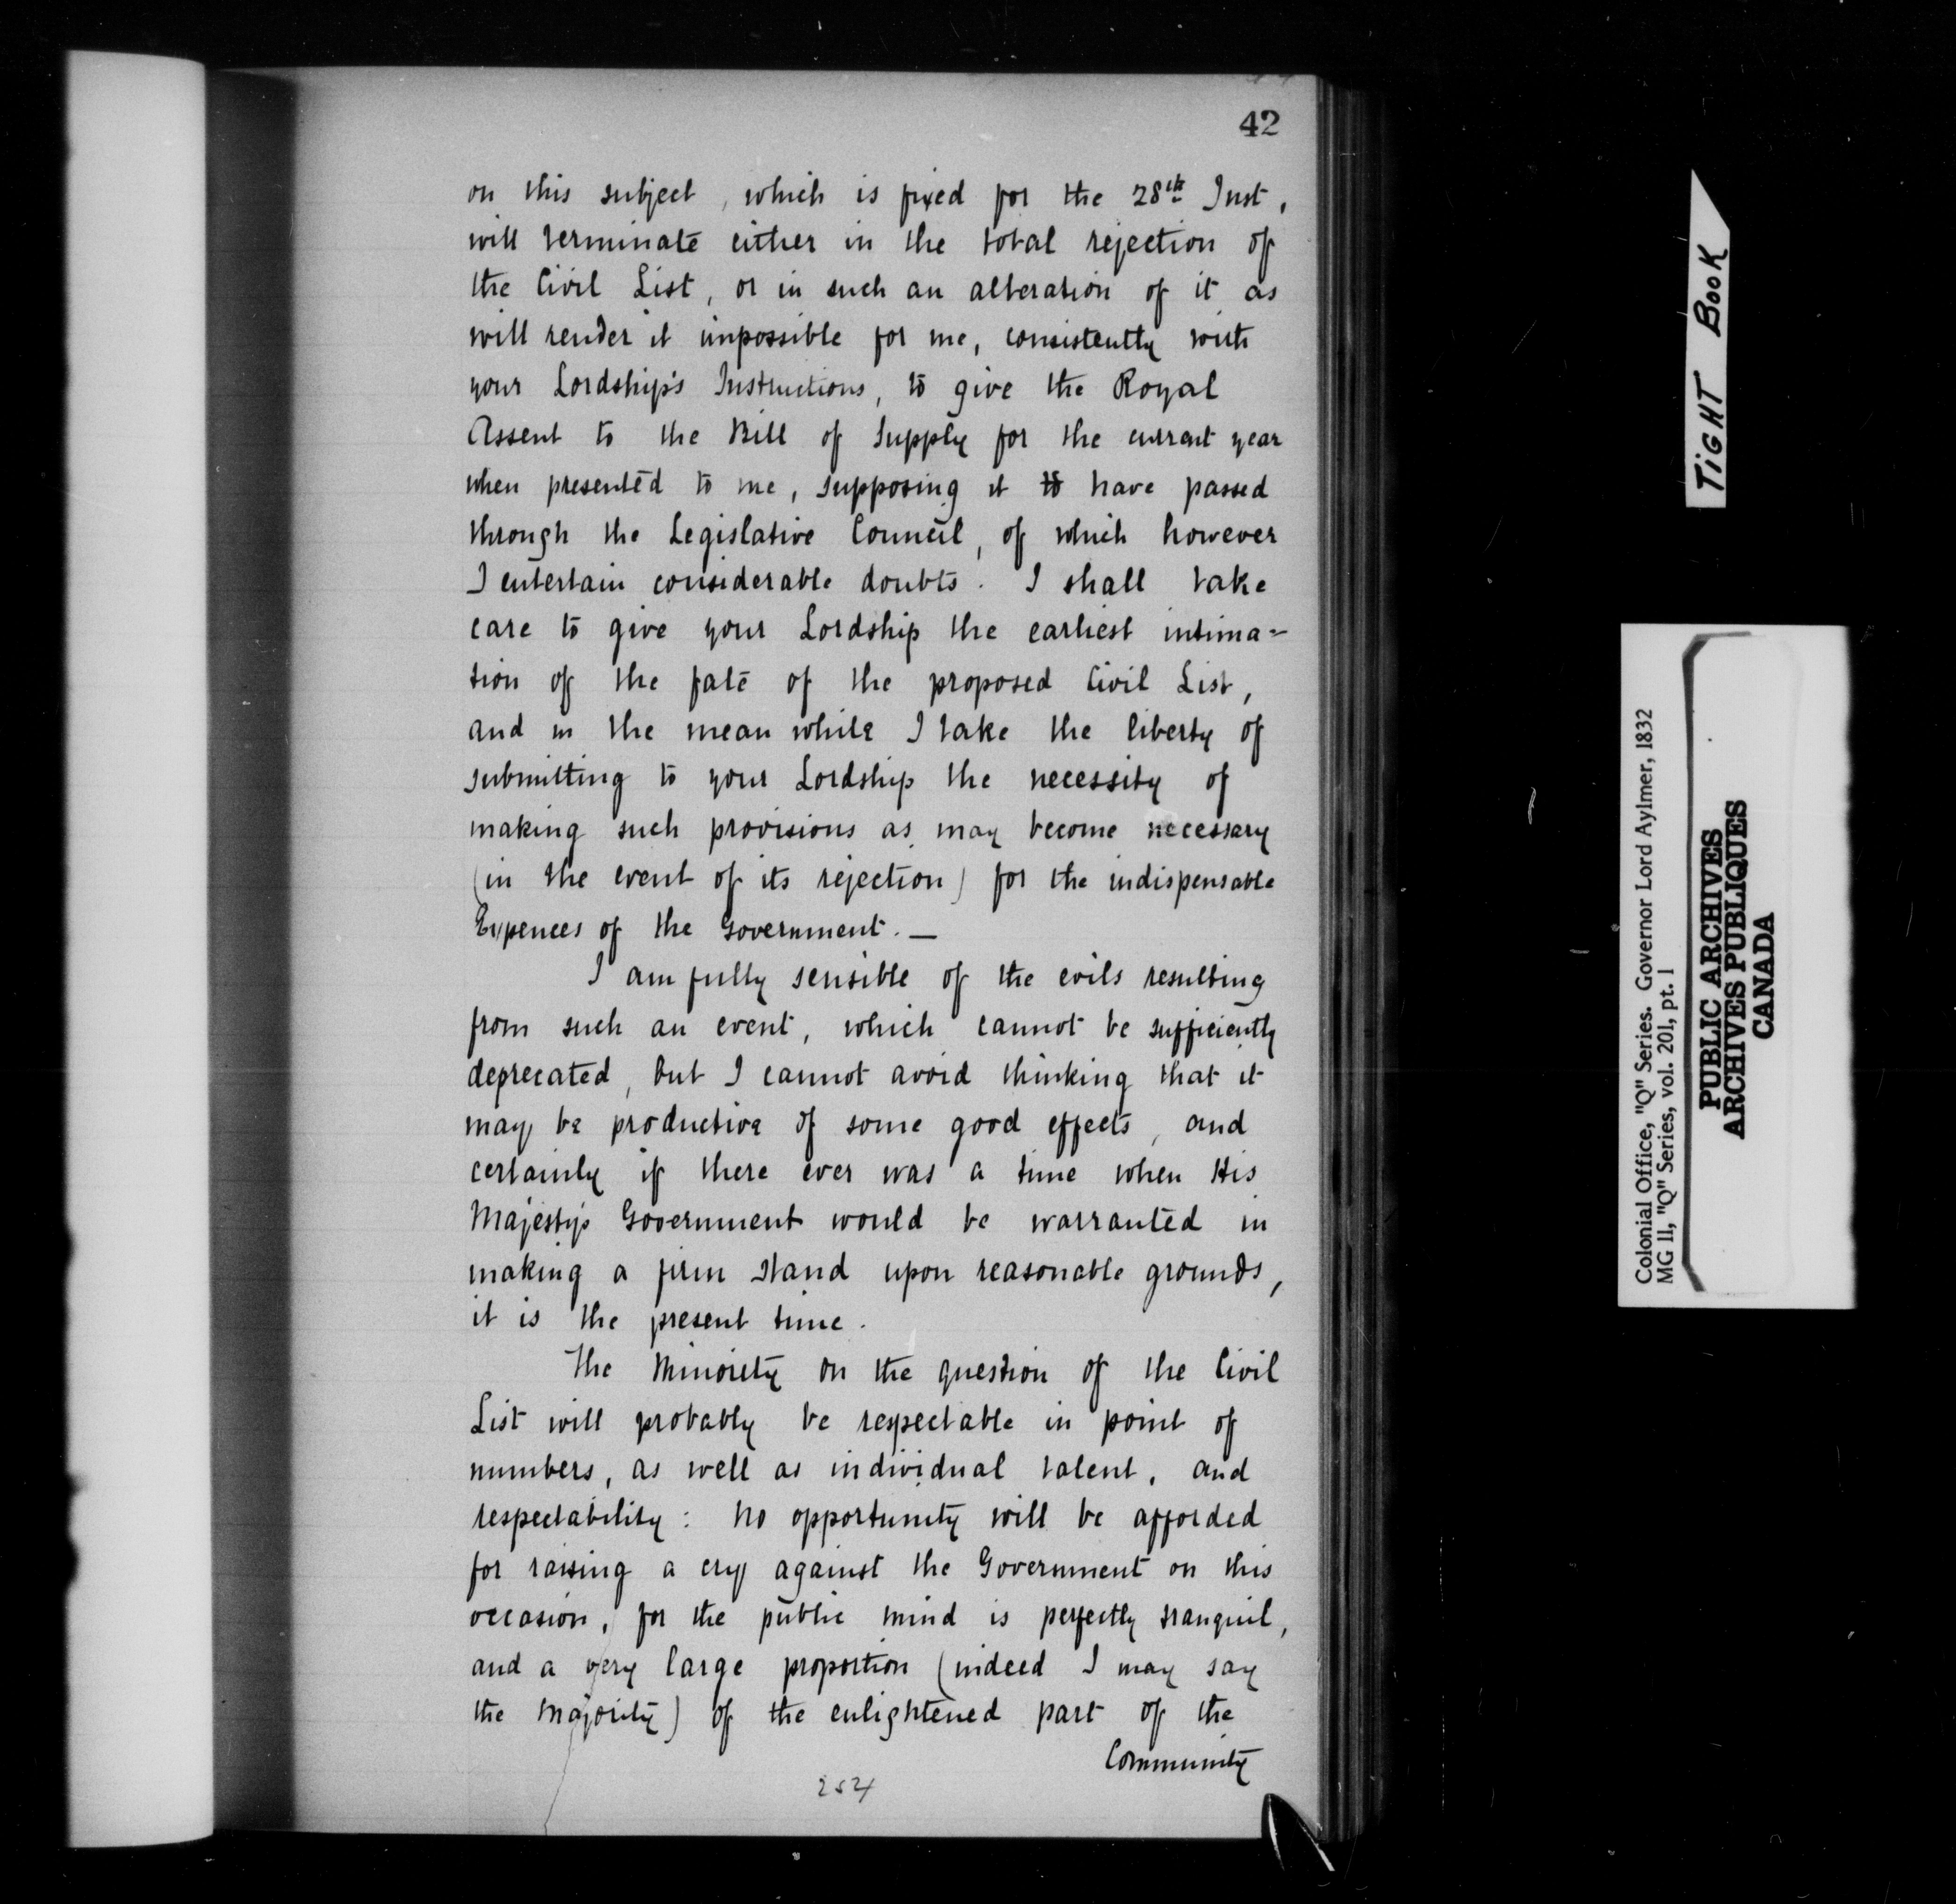 42
on this subject, which is fixed for the 28th Inst,
will terminate either in the total rejection of
the Civil List, or in such an alteration of it as
will render it impossible for me, consistently with
your Lordship's Instructions, to give the Royal
Assent to the Bill of Supply for the current year
when presented to me, supposing it to have passed
through the Legislative Council, of which however
I entertain considerable doubts. I shall take
care to give your Lordship the earliest intima=
tion of the fate of the proposed Civil List,
and in the mean while I take the liberty of
submitting to your Lordship the necessity of
making such provisions as may become necessary
(in the event of its rejection) for the indispensable
Expences of the Government. —
I am fully sensible of the evils resulting
from such an event, which cannot be sufficiently
deprecated, but I cannot avoid thinking that it
may be productive of some good effects, and
certainly if there ever was a time when His
Majesty's Government would be warranted in
making a firm stand upon reasonable grounds,
it is the present time.
The Minority on the question of the Civil
List will probably be respectable in point of
numbers, as well as individual talent, and
respectability: No opportunity will be afforded
for raising a cry against the Government on this
occasion, for the public mind is perfectly tranquil,
and a very large proportion (indeed I may say
the Majority) of the enlightened part of the
Community
254
TIGHT BOOK
Colonial Office, "Q" Series. Governor Lord Aylmer, 1832
MG 11, "Q" Series, vol. 201, pt. 1
PUBLIC ARCHIVES
ARCHIVES PUBLIQUES
CANADA